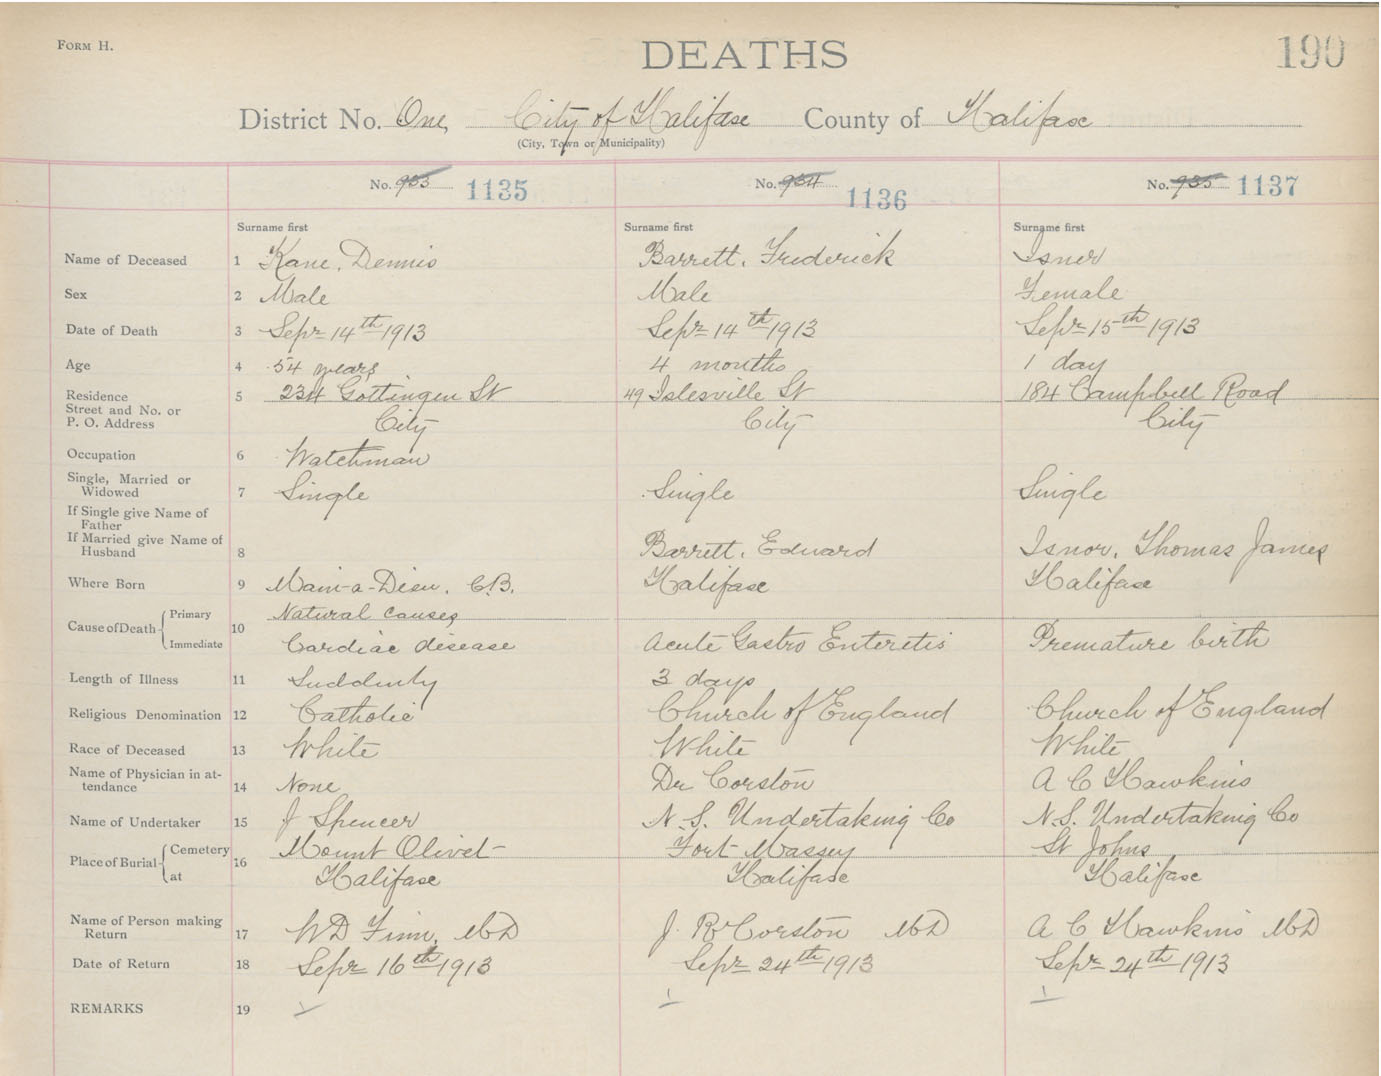 FORM H.
DEATHS
190
District No. One, City of Halifax County of Halifax
(City, Town or Municipality)
No. 933 1135 No. 934 1136 No. 935 1137
Surname first Surname first Surname first
Name of Deceased 1 Kane, Dennis Barrett, Frederick Isner
Sex 2 Male Male Female
Date of Death 3 Sepr 14th 1913 Sepr 14th 1913 Sepr 15th 1913
Age 4 54 years 4 months 1 day
Residence 5 234 Gottingen St 49 Islesville St 184 Campbell Road
Street and No. or
P. O. Address City City City
Occupation 6 Watchman
Single, Married or
Widowed 7 Single Single Single
If Single give Name of
Father
If Married give Name of
Husband 8 Barrett, Edward Isnor, Thomas James
Where Born 9 Main-a-Dieu, C.B. Halifax Halifax
Cause of Death Primary Natural causes
10
Immediate Cardiac disease Acute Gastro Enteretis Premature birth
Length of Illness 11 Suddenly 3 days
Religious Denomination 12 Catholic Church of England Church of England
Race of Deceased 13 White White White
Name of Physician in at-
tendance 14 None Dr Corston A C Hawkins
Name of Undertaker 15 J Spencer N.S. Undertaking Co N.S. Undertaking Co
Place of Burial Cemetery 16 Mount Olivet Fort Massey St Johns
at Halifax Halifax Halifax
Name of Person making
Return 17 W D Finn, MD J. R Corston MD A C Hawkins MD
Date of Return 18 Sepr 16th 1913 Sepr 24th 1913 Sepr 24th 1913
REMARKS 19